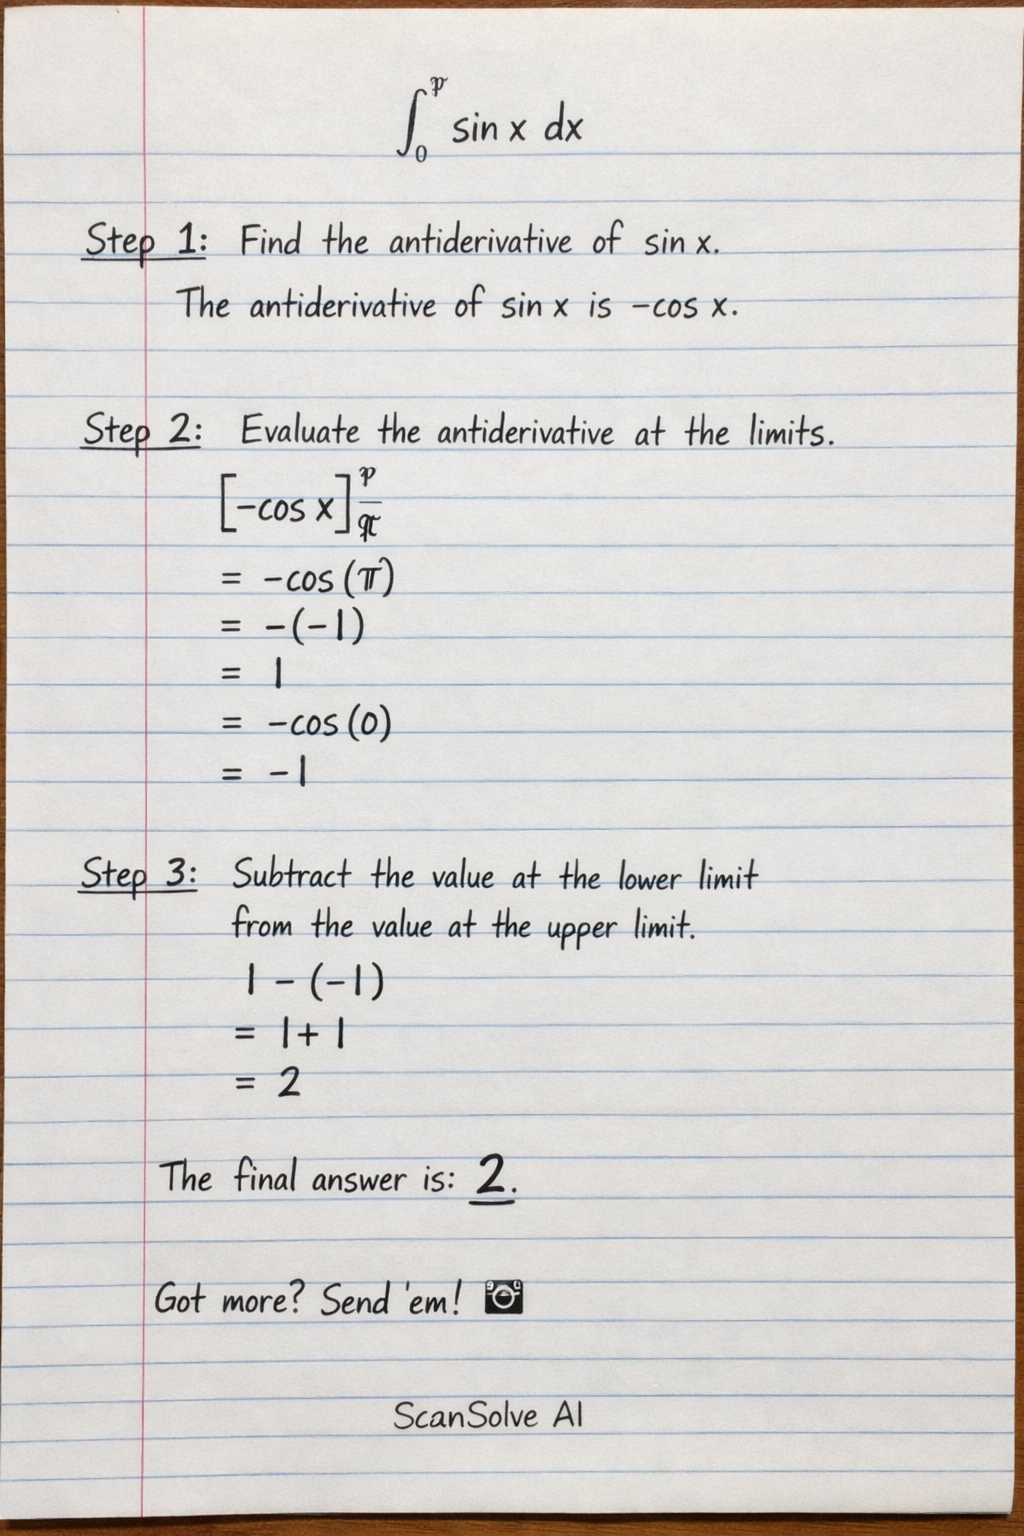 ∫₀^𝔭 sin x dx
Step 1: Find the antiderivative of sin x.
The antiderivative of sin x is -cos x.
Step 2: Evaluate the antiderivative at the limits.
[-cos x]
= -cos (π)
= -(-1)
= 1
= -cos (0)
= -1
Step 3: Subtract the value at the lower limit
from the value at the upper limit.
1 - (-1)
= 1 + 1
= 2
The final answer is: 2.
Got more? Send 'em!
ScanSolve AI